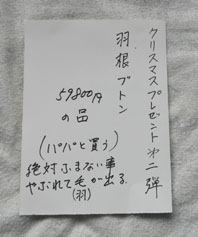 クリスマスプレゼント才二弾
羽根ブトン
59800円
の品
(パパと買う)
絶対ふまない事
やぶれて毛が出る
(羽)